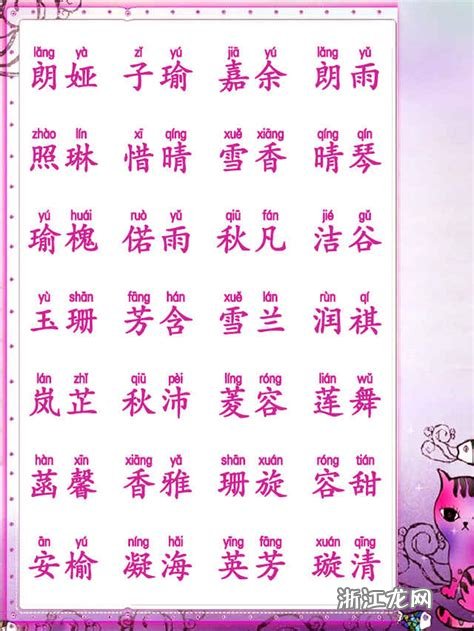 lǎng yà zǐ yú jiā yú lǎng yǔ
朗娅 子瑜 嘉余 朗雨
zhào lín xī qíng xuě xiāng qíng qín
照琳 惜晴 雪香 晴琴
yú huái ruò yǔ qiū fán jié gǔ
瑜槐 偌雨 秋凡 洁谷
yù shān fāng hán xuě lán rùn qí
玉珊 芳含 雪兰 润祺
lán zhǐ qiū pèi líng róng lián wǔ
岚芷 秋沛 菱容 莲舞
hàn xīn xiāng yǎ shān xuán róng tián
菡馨 香雅 珊旋 容甜
ān yú níng hǎi yīng fāng xuán qīng
安榆 凝海 英芳 璇清
浙江龙网